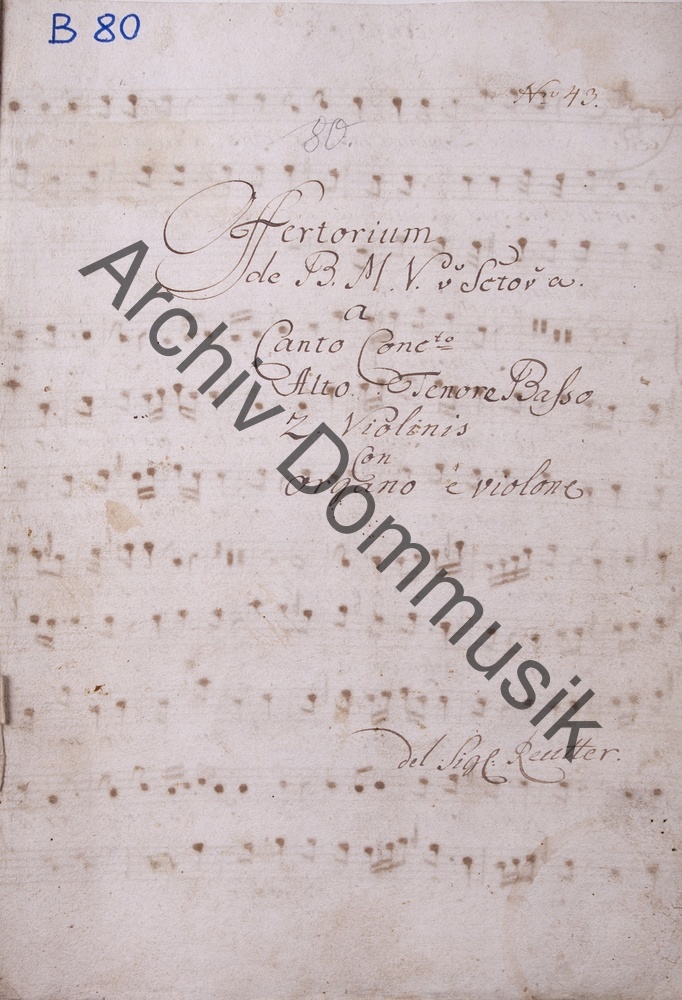 B 80
Nro 43.
80.
Offertorium
de B. M. V. v̆ Sctov̆ a.
a
Canto Conc.to
Alto. Tenore Basso
2 Violinis
Con
organo è violone
del Sigl: Reutter.
Archiv Dommusik